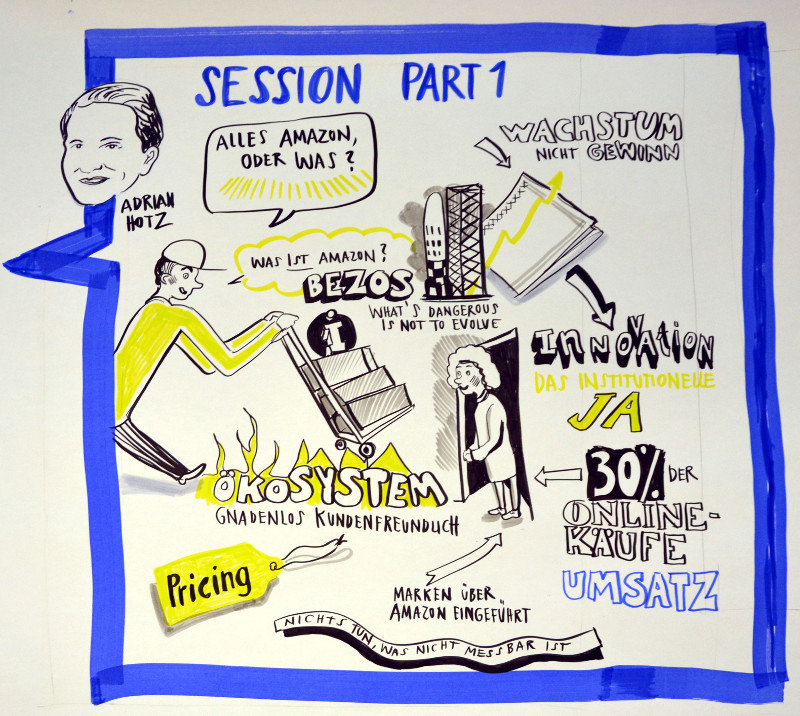 SESSION PART 1
ADRIAN
HOTZ
ALLES AMAZON,
ODER WAS?
WACHSTUM
NICHT GEWINN
WAS IST AMAZON?
BEZOS
WHAT'S DANGEROUS
IS NOT TO EVOLVE
INNOVATION
DAS INSTITUTIONELLE
JA
30% DER
ONLINE-
KÄUFE
UMSATZ
ÖKOSYSTEM
GNADENLOS KUNDENFREUNDLICH
Pricing
MARKEN ÜBER
AMAZON EINGEFÜHRT
NICHTS TUN, WAS NICHT MESSBAR IST